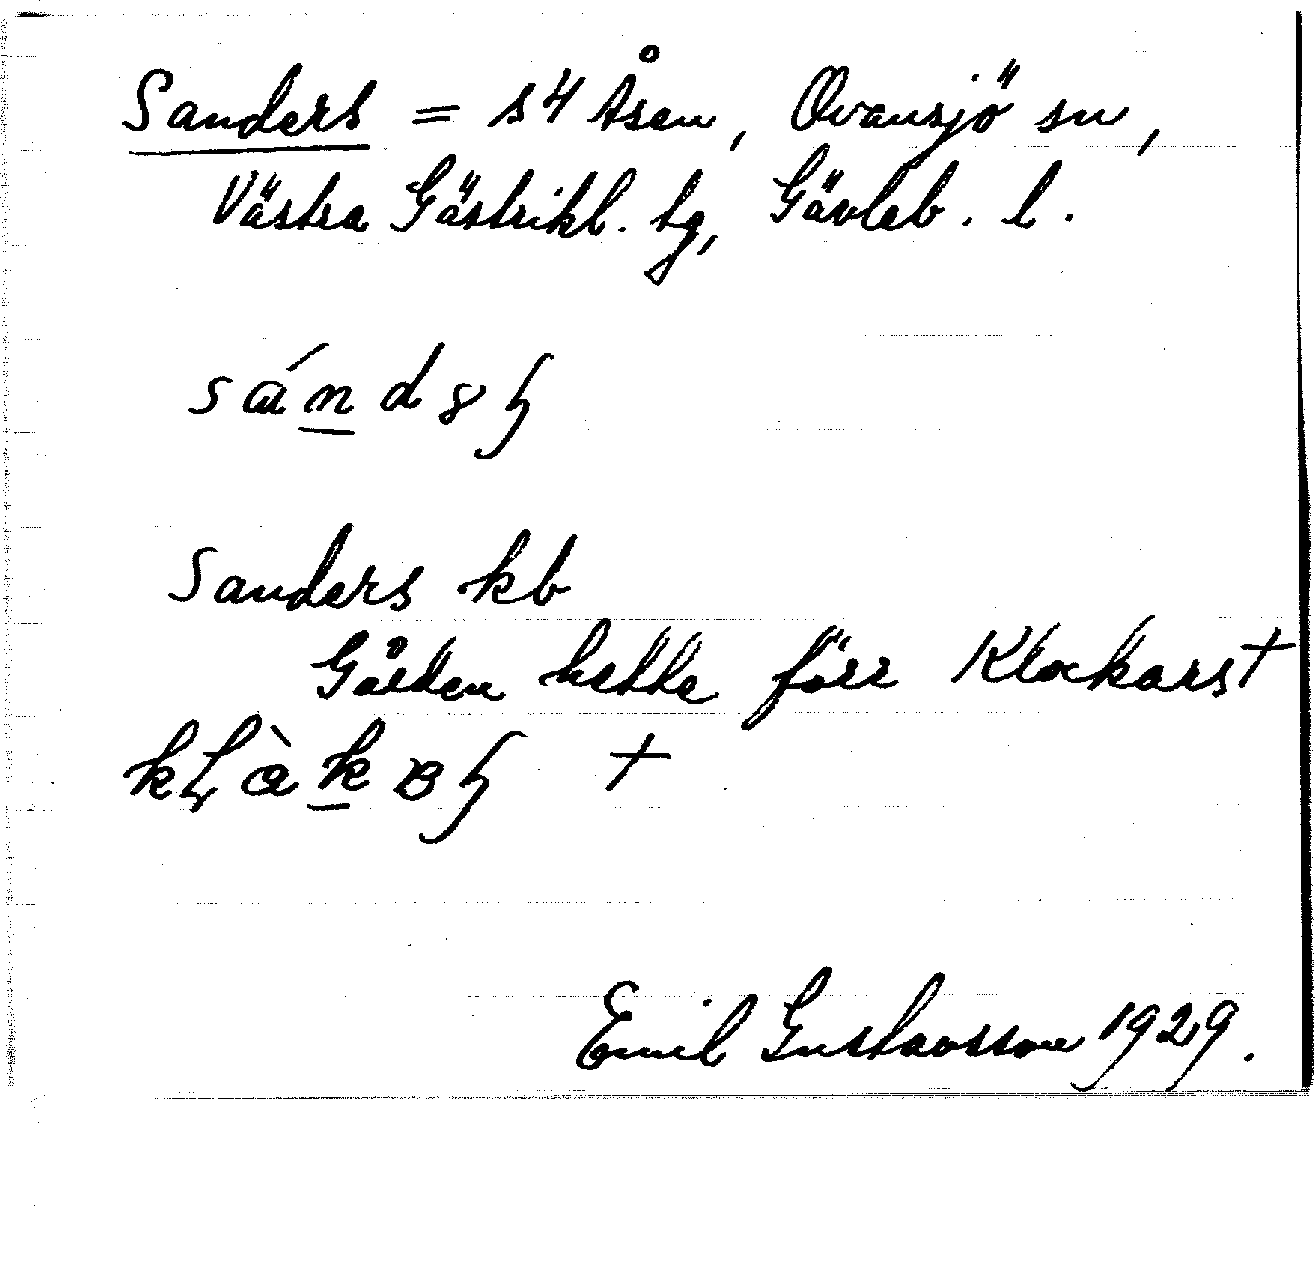 Sanders = s 4 Åsen, Ovansjö sn,
Västra Gästrikl. tg, Gävleb. l.
Sanders kb
Gården hette förr Klockars †
Emil Gustavsson 1929.